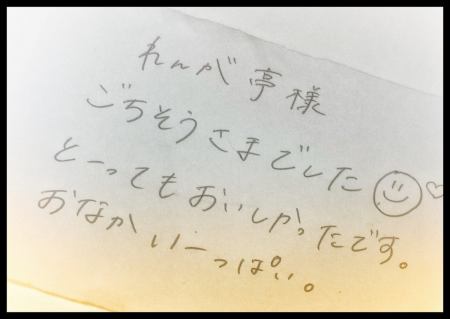 れんが亭様
ごちそうさまでした
とーってもおいしかったです。
おなかいーっぱい。